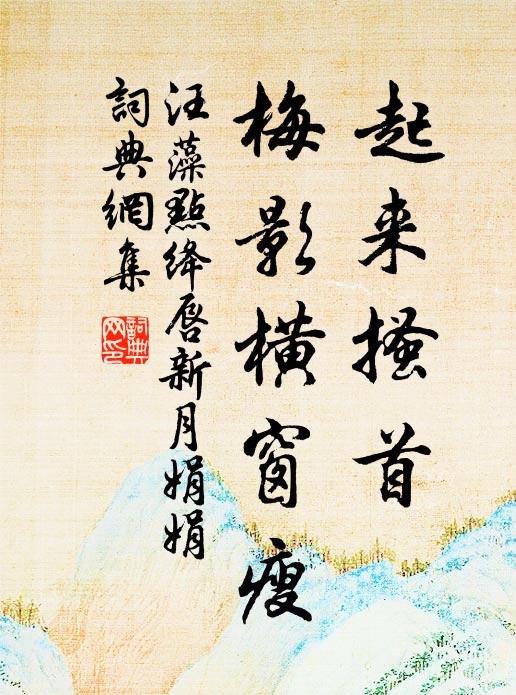 起来搔首
梅影橫窗瘦
汪藻點绛唇新月娟娟
詞典網集
詞典网印